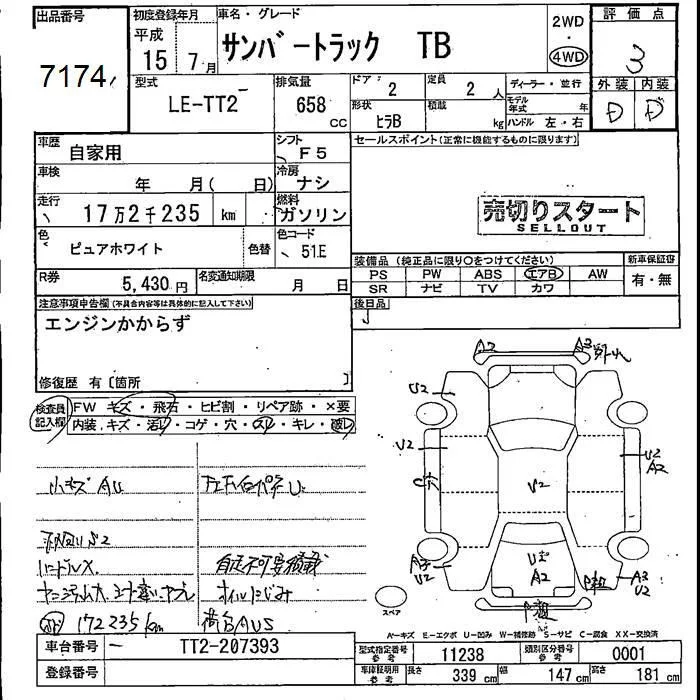 出品番号 初度登録年月 車名・グレード 2WD 評価点
7174 平成 15年 7月 サンバートラック TB ・ 4WD 3
型式 排気量 ドア 定員 ディーラー・並行 外装 内装
LE-TT2 658 CC 2 2人 モデル年式 年 D D
形状 積載
ヒラB kg ハンドル 左・右
車歴 シフト セールスポイント(正常に機能するものに限ります)
自家用 F5
車検 年 月( 日) 冷房 ナシ
走行 燃料 売切りスタート
17万2千235 km ガソリン SELLOUT
色 色替 色コード
ピュアホワイト 51E
装備品(純正品に限り○をつけてください) 新車保証書
R券 5,430円 名変通知期限 月 日 PS PW ABS エアB AW 有・無
SR ナビ TV カワ
注意事項申告欄(不具合内容等は具体的に記入して下さい) 後日品
エンジンかからず
修復歴 有[箇所 ]
A2 A3
検査員記入欄 FW キズ・飛石・ヒビ割・リペア跡・×要
内装.キズ・汚レ・コゲ・穴・スレ・キレ・破レ
U2
U2 U2 A2
小キズ AU
U2
ハンドルス 自走不可要積載
A2
U2 A3 U2
オイルにじみ
172235km 荷台AUS
スペア
A-キズ E-エクボ U-凹み W-補修跡 S-サビ C-腐食 XX-交換済
車台番号 TT2-207393 型式指定番号 参考 11238 類別区分番号 参考 0001
登録番号 車庫証明用 参考 長さ 339 cm 幅 147 cm 高さ 181 cm